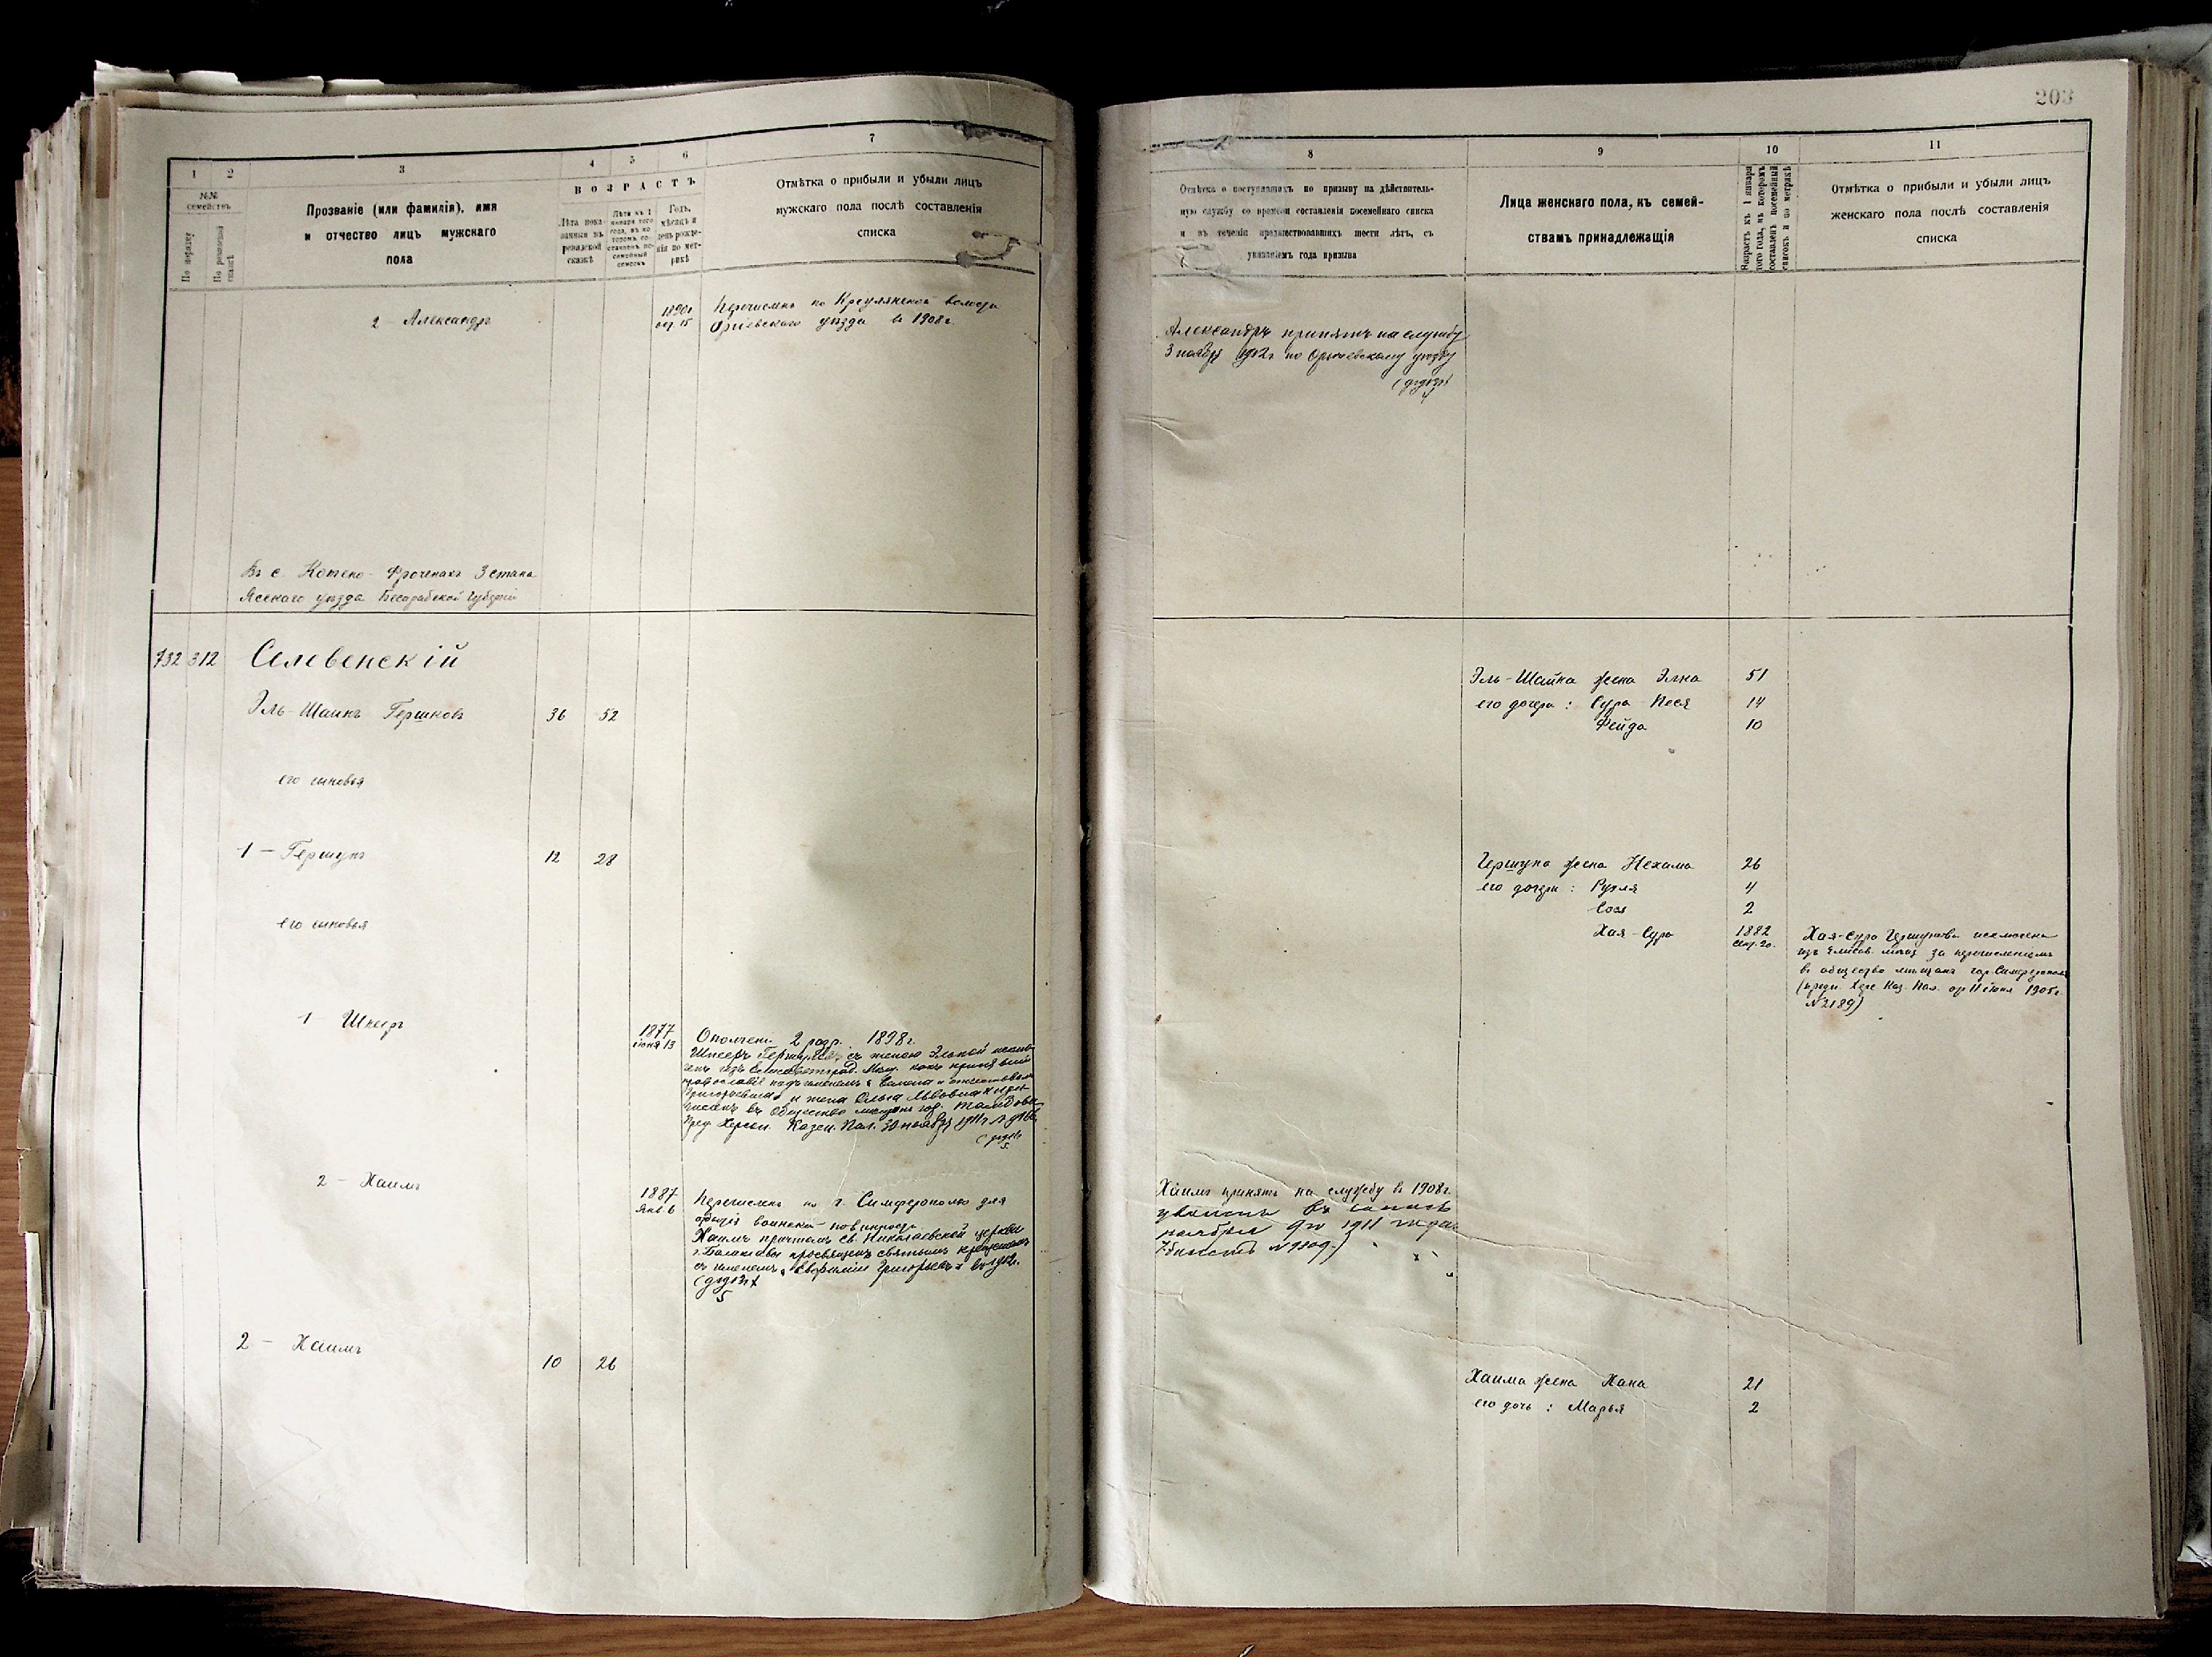 203
1
2
3
4
5
6
7
№№
семействъ
По порядку
По ревизской сказкѣ
Прозваніе (или фамилія), имя
и отчество лицъ мужскаго
пола
ВОЗРАСТЪ
Лѣта пока-
занныя въ
ревизской
сказкѣ
Лѣта къ 1
января того
года, въ ко-
торомъ со-
ставленъ по-
семейный
списокъ
Годъ,
мѣсяцъ и
день рожде-
нія по мет-
рикѣ
Отмѣтка о прибыли и убыли лицъ
мужскаго пола послѣ составленія
списка
2 - Александръ
1890г
окт. 15
Перечисленъ по волости
Оргѣевскаго уѣзда въ 1908г.
Въ с. 3 стана
Ясскаго уѣзда Бессарабской губерніи
732 312 Селевенскій
Эль-Шаинъ Гершковъ 36 52
его сыновья
1 - Гершунъ 12 28
его сыновья
1 - Шнееръ
1877
іюня 13
Ополчен. 2 разр. 1898г.
Шнееръ съ женою
изъ Елисаветград. Мѣщ. какъ принявшій
православіе подъ именемъ
и жена Ольга Львовна
въ общество мѣщанъ гор.
Пред. Херсон. Казен. Пал. 30 ноября 1911г.
2 - Хаимъ
1887
Янв. 6
Перечисленъ по г. Симферополю для
воинской повинности
Хаимъ причтомъ Св. Николаевской церкви
г. Балаклавы просвященъ святымъ крещеніемъ
съ именемъ въ 1912г.
5
2 - Хаимъ 10 26
8
9
10
11
Отмѣтка о поступившихъ по призыву на дѣйствитель-
ную службу со времени составленія посемейнаго списка
и въ теченіи предшествовавшихъ шести лѣтъ, съ
указаніемъ года призыва
Лица женскаго пола, къ семей-
ствамъ принадлежащія
Возрастъ къ 1 января
того года, въ которомъ
составленъ посемейный
списокъ и по метрикѣ
Отмѣтка о прибыли и убыли лицъ
женскаго пола послѣ составленія
списка
Александръ принятъ на службу
3 ноября 1912г по Оргѣевскому уѣзду
Эль-Шаина жена Элка 51
его дочери: Сура Песя 14
Фейга 10
Гершуна жена Нехама 26
его дочери: Рухля 4
Сося 2
Хая-Сура 1882
сент. 20.
Хая-Сура Гершунова исключена
изъ Елисав. мѣщ. за перечисленіемъ
въ общество мѣщанъ гор. Симферополя
(пред. Хер. Каз. Пал. от 11 іюня 1905г.
№ 2189)
Хаимъ принятъ на службу въ 1908г.
уволенъ въ запасъ
ноября 9го 1911 года
Хаима жена Хана 21
его дочь: Марья 2